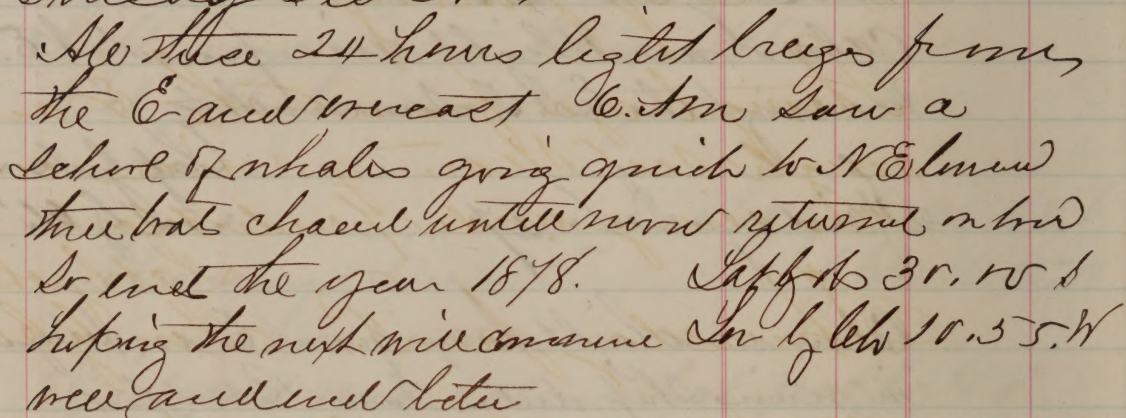 All these 24 hours light breezes from
the E and overcast 6. Am saw a
school of whales going quick to N E lowerd
three boats chaced untill noon returned on bord
So ends the year 1878. Lat by obs 30.10 S
hoping the next will commence Lon by Chr 10.55.W
well and end better